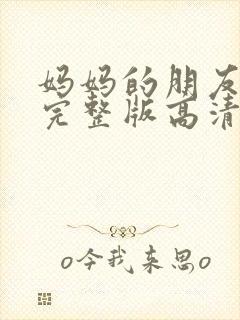 妈妈的朋友
完整版高清
o今我来思o